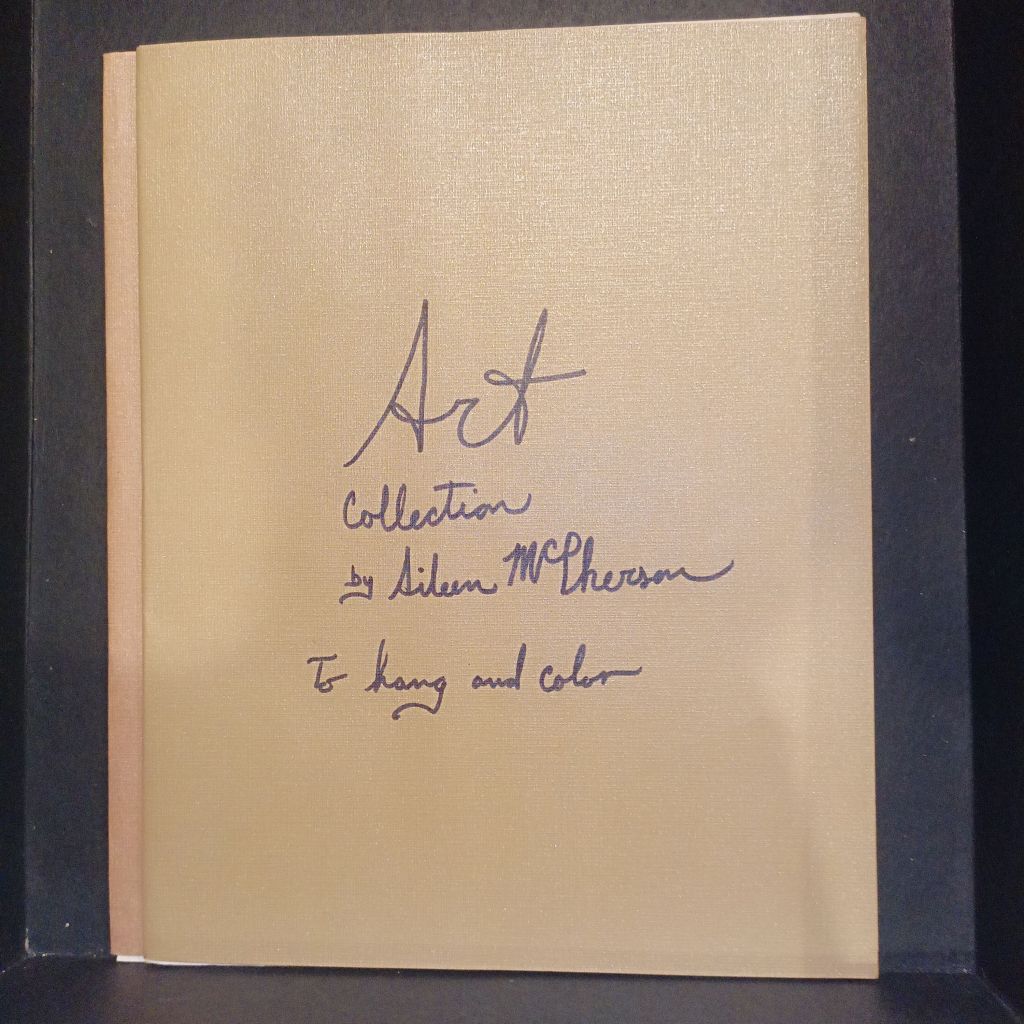 Art
Collection
by Aileen McPherson
To hang and color